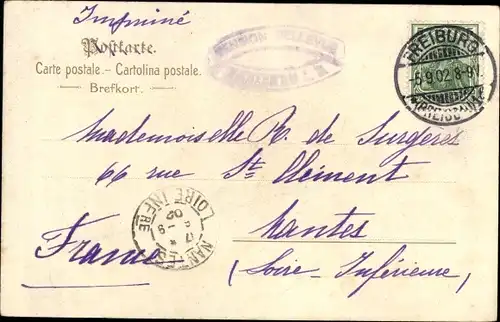 Imprimé
Postkarte.
Carte postale. – Cartolina postale.
Brefkort.
PENSION BELLEVUE
FREIBURG
6.9.02.8-9V.
(BREISGAU)
Mademoiselle R. de Surgères
66 rue St Clément
Nantes
(Loire-Inférieure)
France
NANTES
LOIRE INFRE